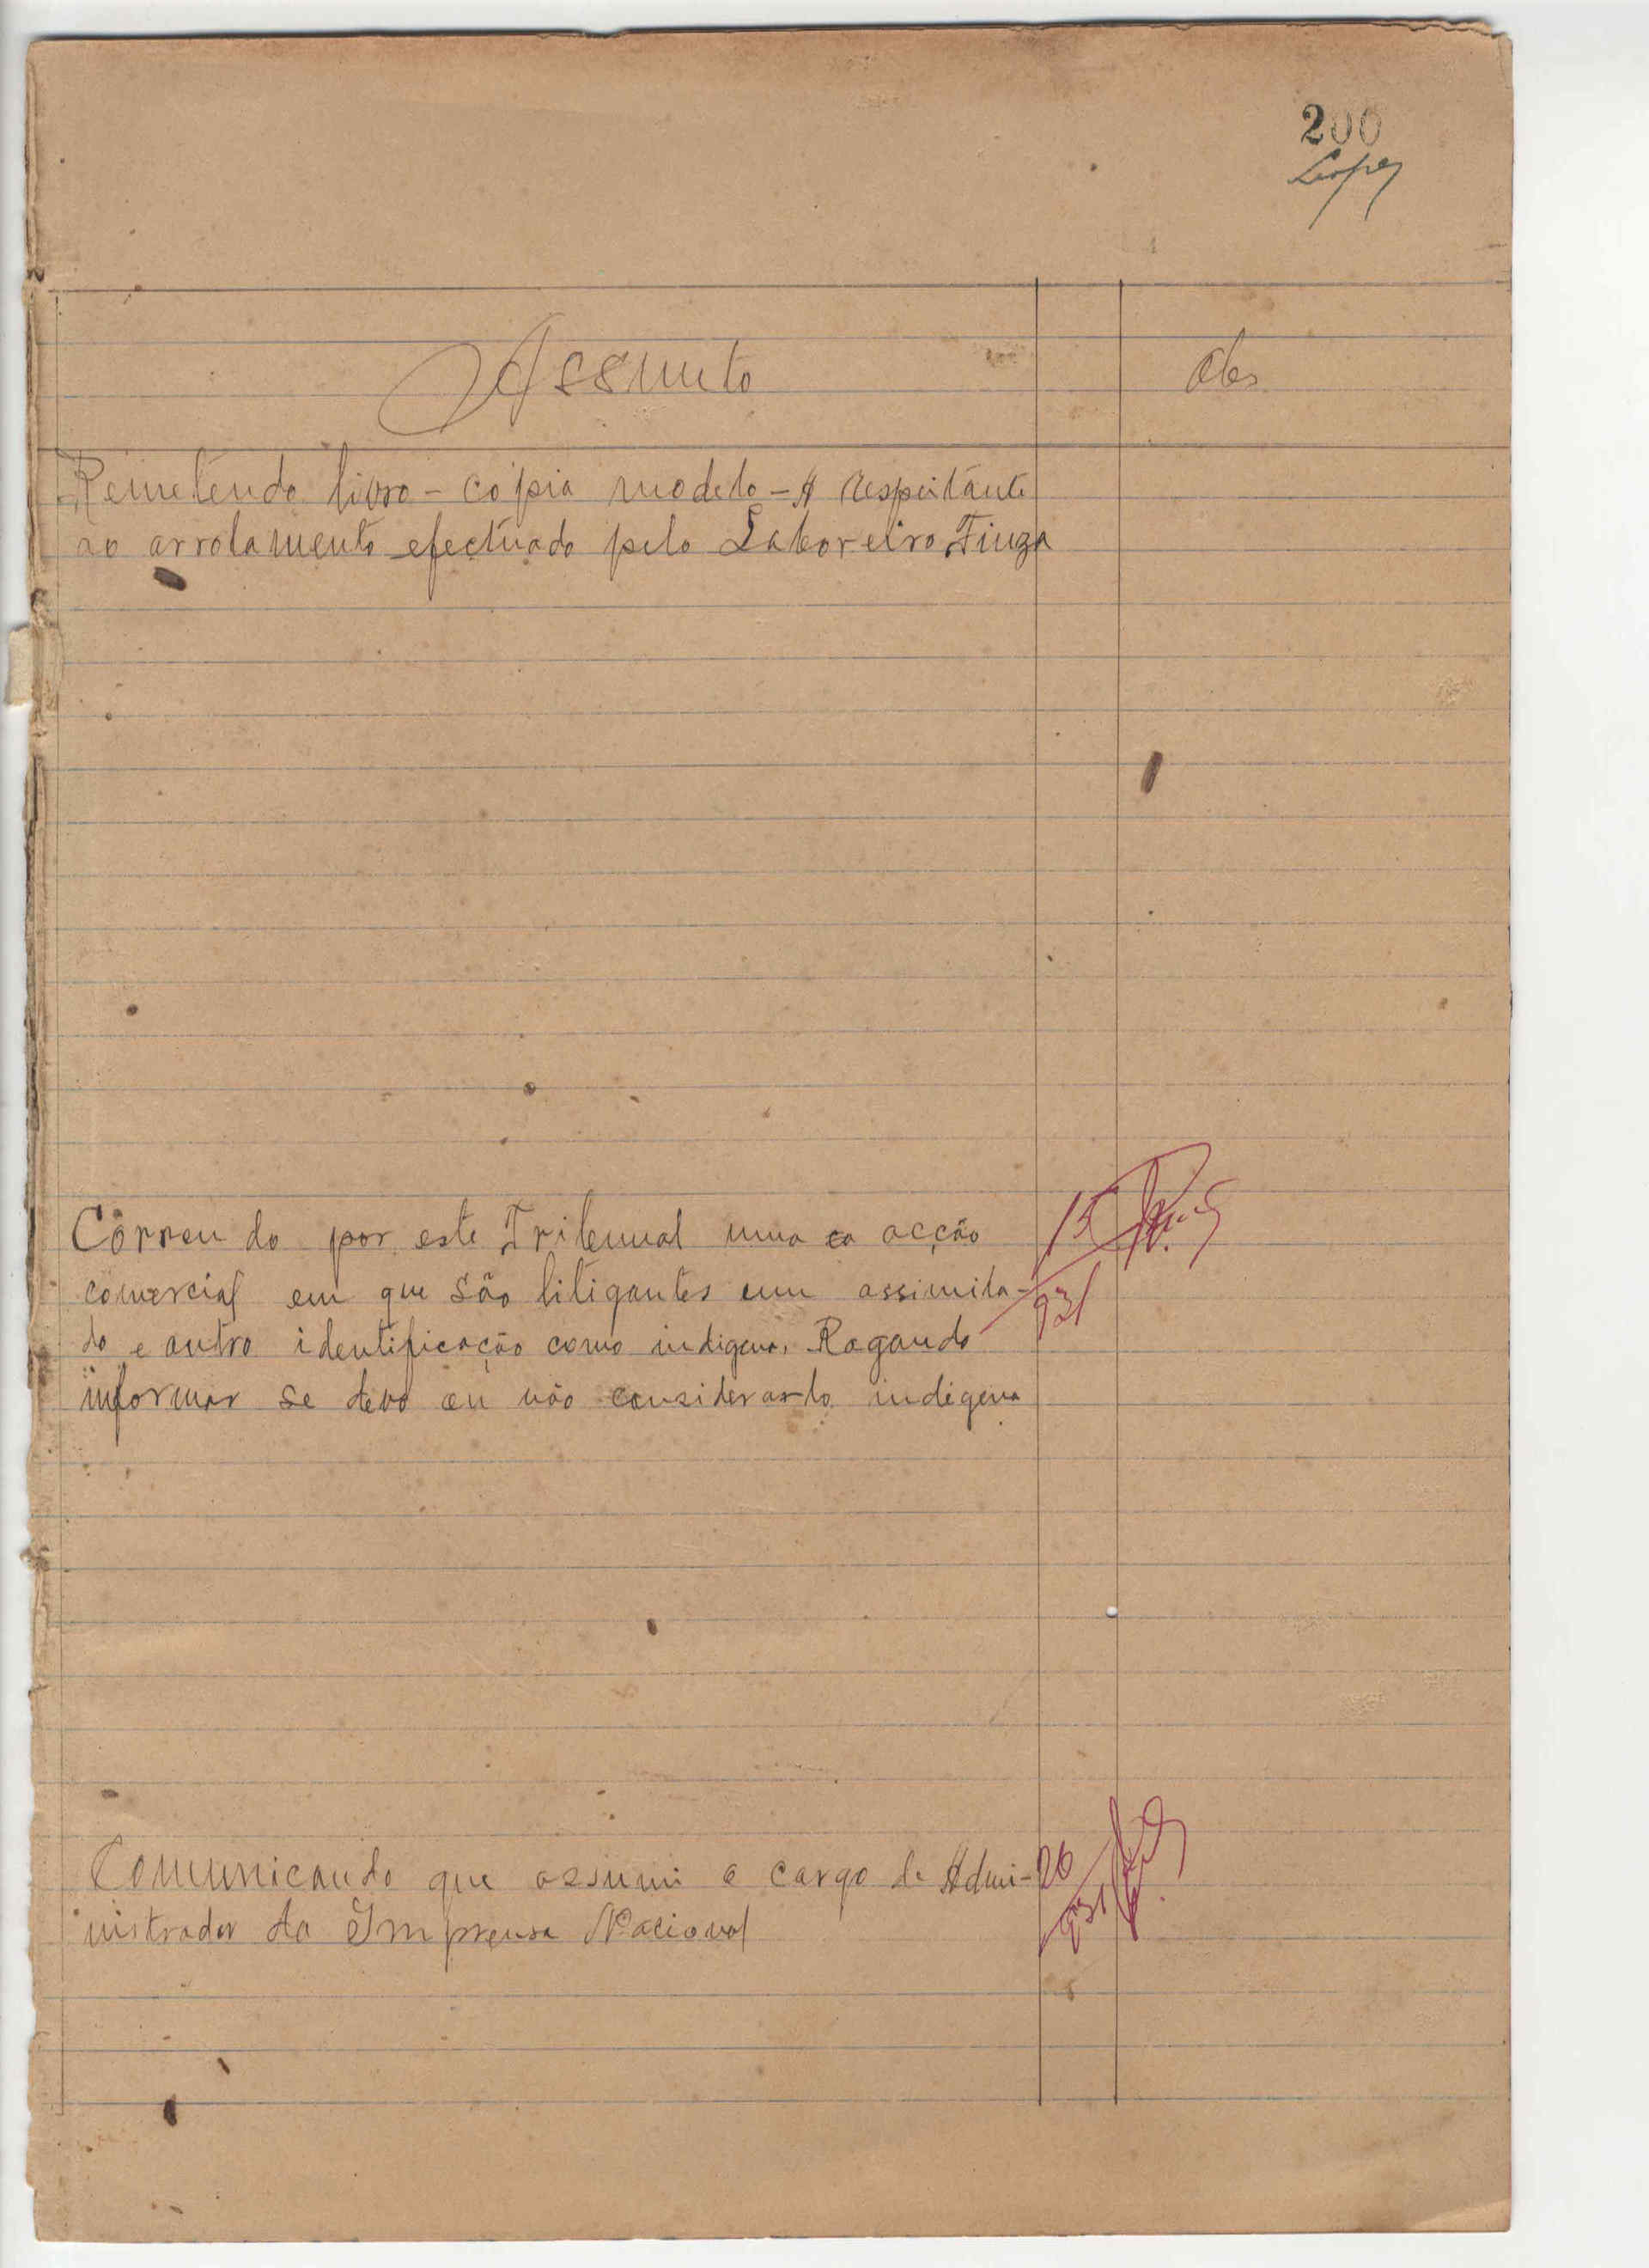 200
Lopes
Assunto
Obs
Remetendo livro-cópia modelo-A respeitante
ao arrolamento efectuado pelo Laboreiro Fiuza
Correndo por este Tribunal uma acção
comercial em que são litigantes um assimila-
do e outro identificação como indigena, Rogando
informar se devo ou não considerar-lo indigena
15
931
Comunicando que assumi o cargo de Admi-
nistrador da Imprensa Nacional
26
931